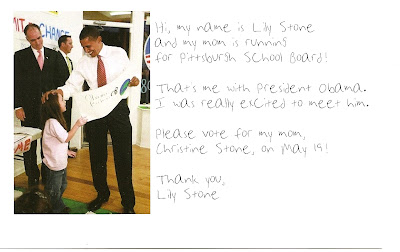 CHANGE
Hi, my name is Lily Stone
and my mom is running
for Pittsburgh School Board!
That's me with President Obama.
I was really excited to meet him.
Please vote for my mom,
Christine Stone, on May 19!
Thank you,
Lily Stone